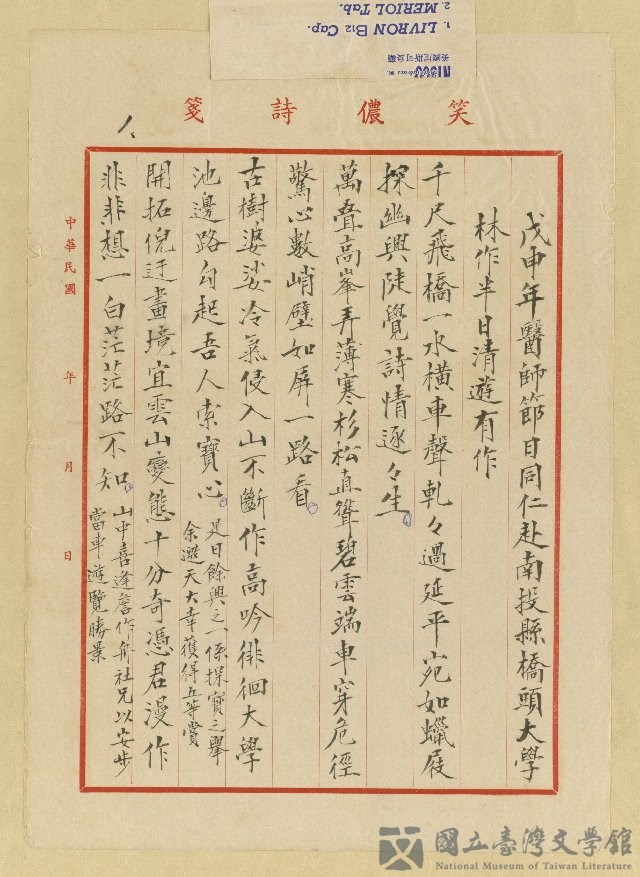 1. LIVRON B12 Cap.
2. MERIOL Tab.
笑儂詩箋
戊申年醫師節日同仁赴南投縣橋頭大學
林作半日清遊有作
千尺飛橋一水橫車聲軋々過延平宛如蠟屐
探幽興陡覺詩情逐々生
萬叠高峯弄薄寒杉松直聳碧雲端車穿危徑
驚心數峭壁如屏一路看
古樹婆娑冷氣侵入山不斷作高吟徘徊大學
池邊路勾起吾人索寶心
是日餘興之一係探寶之舉
余邀天大幸獲得五等賞
開拓倪迂畫境宜雲山變態十分奇憑君漫作
非非想一白茫茫路不知
山中喜逢詹作舟社兄以安步
當車遊覽勝景
中華民國 年 月 日
國立臺灣文學館
National Museum of Taiwan Literature